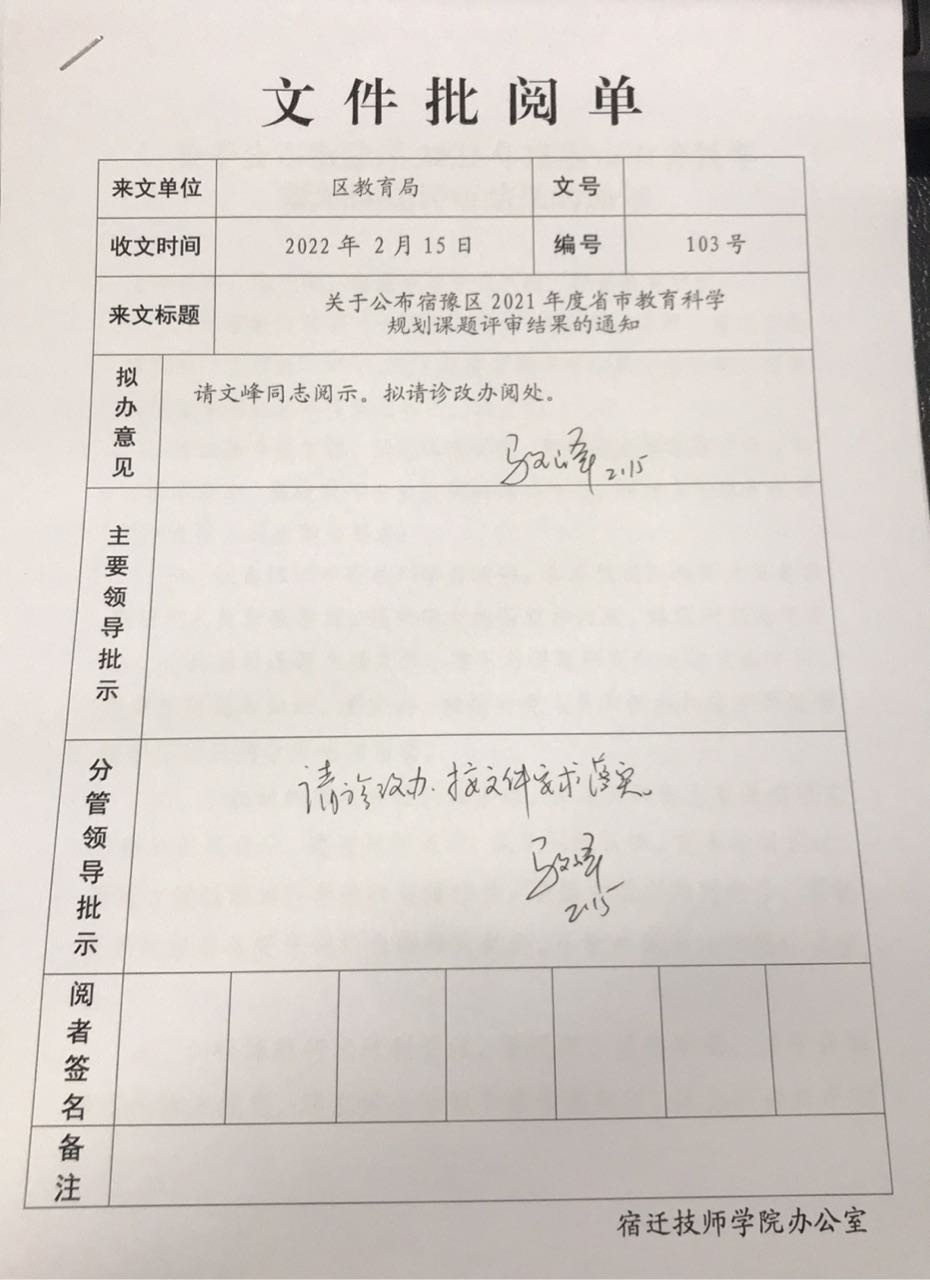 文件批阅单
来文单位 区教育局 文号
收文时间 2022年 2月15日 编号 103号
来文标题 关于公布宿豫区2021年度省市教育科学
规划课题评审结果的通知
拟办意见 请文峰同志阅示。拟请诊改办阅处。
2.15
主要领导批示
分管领导批示 请诊改办.按文件要求落实。
2.15
阅者签名
备注
宿迁技师学院办公室